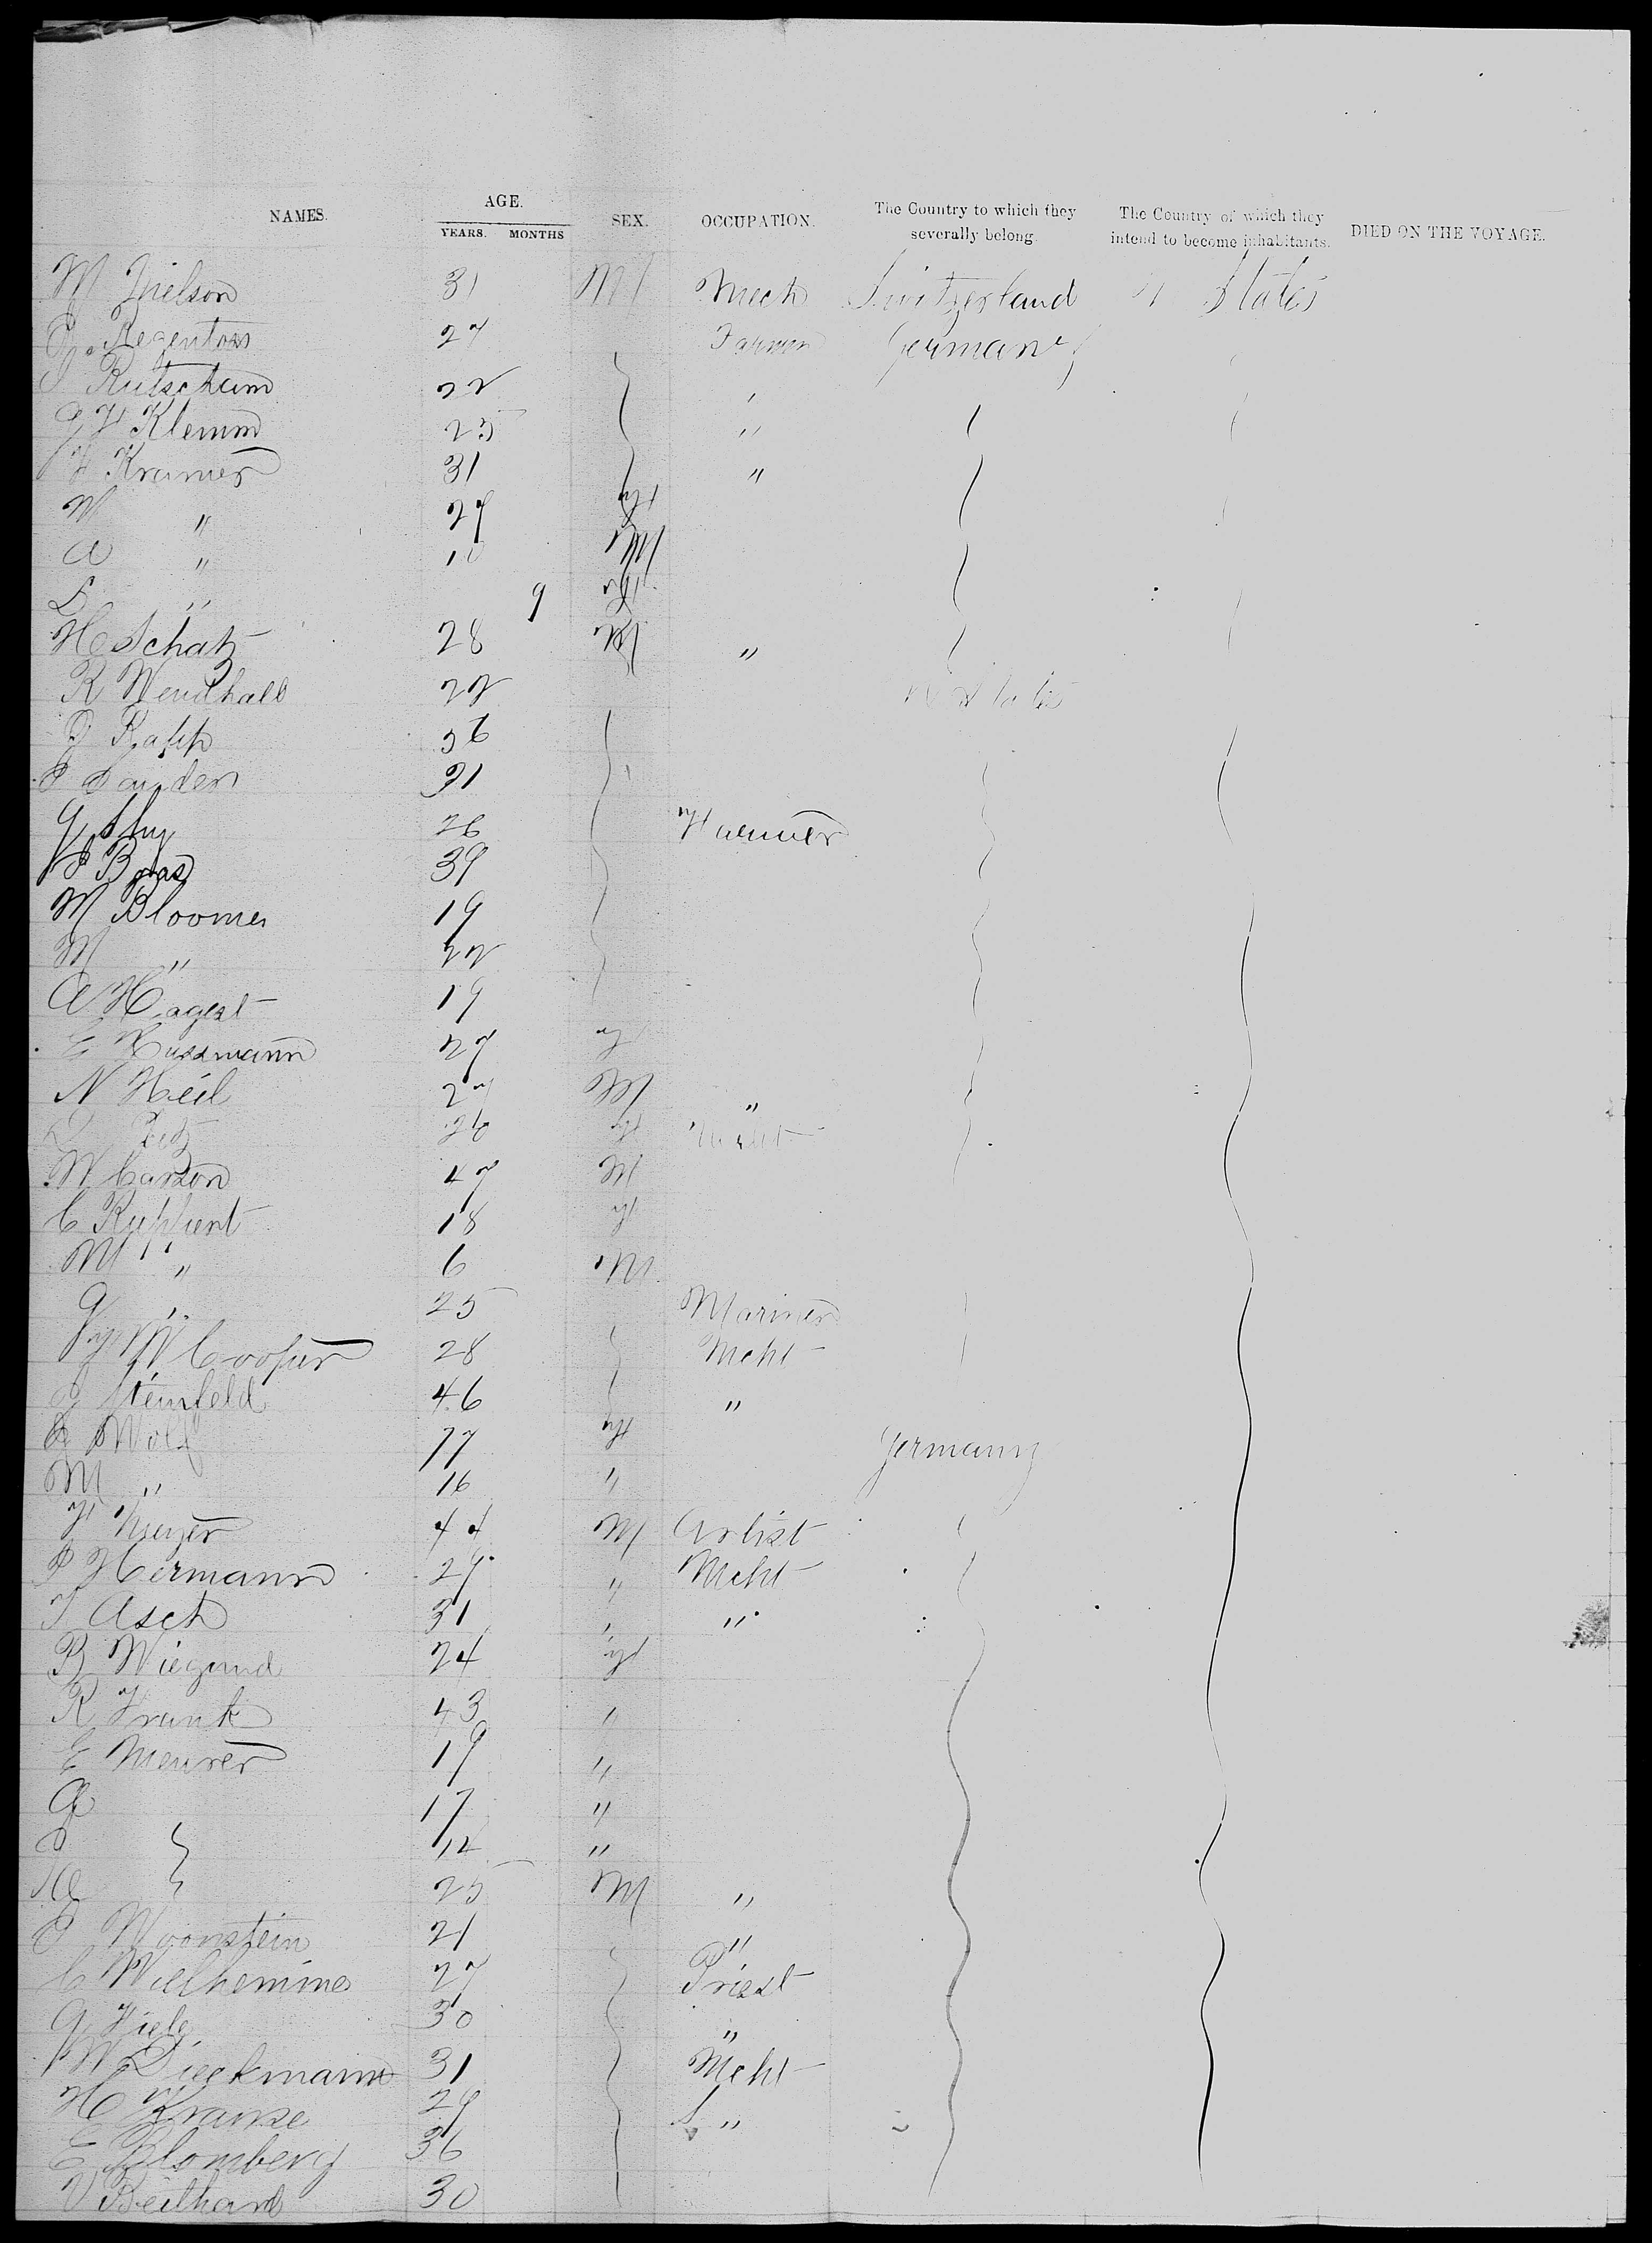 NAMES. AGE. YEARS. MONTHS SEX. OCCUPATION. The Country to which they severally belong. The Country of which they intend to become inhabitants. DIED ON THE VOYAGE.
M Nielson 31 M Mech Switzerland U States
Regentoss 27 Farmer Germany
Rutscham 22 "
G F Klemm 25 "
F Kramer 31 "
M " 27 F
A " 10 M
L " 9 F
H Schatz 28 M "
R Wendhall 22 U States
J Rapp 56
S Sauder 31
G Shy 26 Farmer
39
M Bloomer 19
M " 22
A Hagest 19
E Hussmann 27 F
N Heil 27 M "
26 F Mcht
W Carson 47 M
C Ruppert 18 F
M " 6 M
G " 25 Mariner
W Cooper 28 Mcht
J Steinfeld 46 "
Wolf 77 F Germany
M " 16 "
F Meyer 44 M Artist
P Hermann 29 " Mcht
I Asch 31 " "
B Wiegand 24 F
R Frank 43 "
E Meurer 19 "
A 17 "
12 "
25 M "
Woonstein 21 "
C Wielhemine 27 Priest
G Fiele 30 "
W Dieckmann 31 Mcht
H Krause 29 "
E Blomberg 36
V Beilhard 30